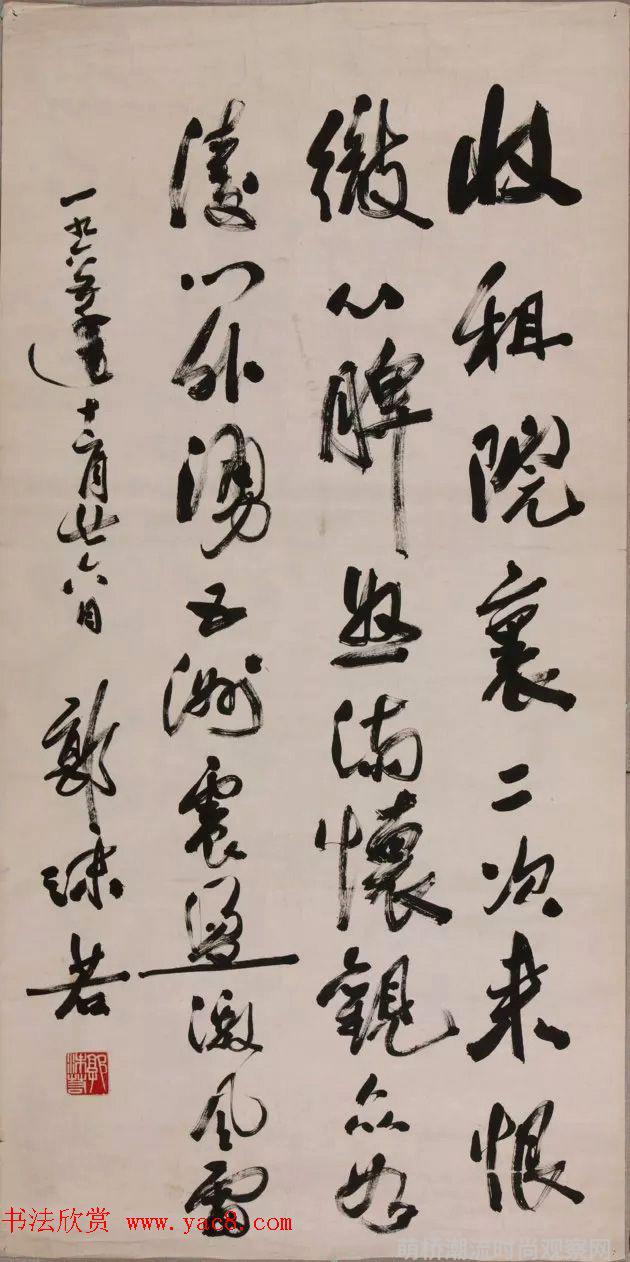 收租院裏二次来恨
徹心脾怒滿懷觀众如
濤门外湧五洲震盪激風雷
一九六 十二月廿六日 郭沫若
郭沫若
书法欣赏 www.yac8.com
萌桥潮流时尚观察网